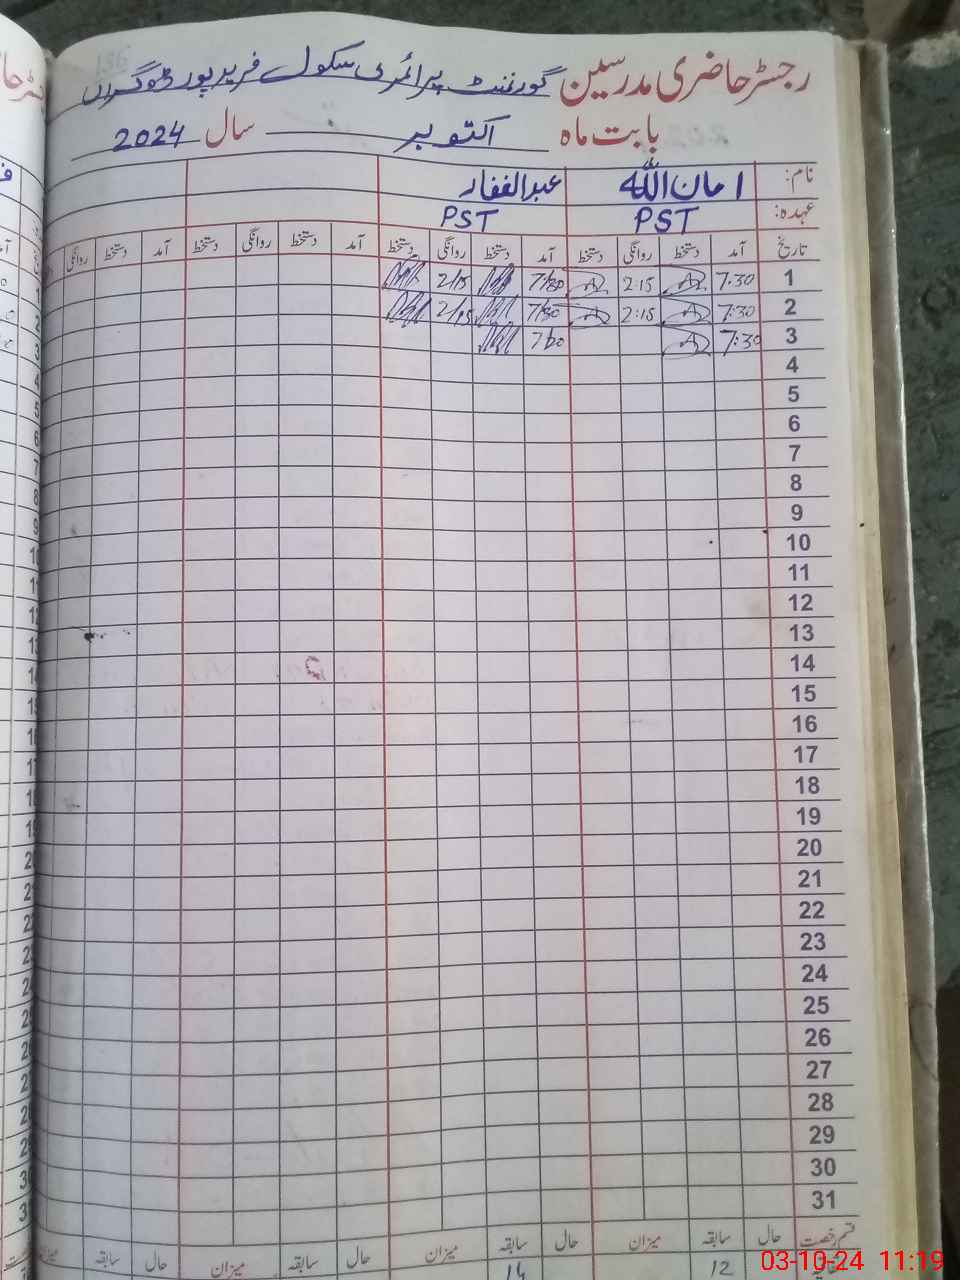 رجسٹر حاضری مدرسین گورنمنٹ پرائمری سکول فرید پور ڈوگراں
بابت ماہ اکتوبر سال 2024
نام: امان اللہ عبدالغفار
عہدہ: PST PST
تاریخ آمد دستخط روانگی دستخط آمد دستخط روانگی دستخط آمد دستخط روانگی دستخط آمد دستخط روانگی
1 7:30 2:15 7/30 2/15
2 7:30 2:15 7/30 2/15
3 7:30
4
5
6
7
8
9
10
11
12
13
14
15
16
17
18
19
20
21
22
23
24
25
26
27
28
29
30
31
قسم رخصت حال سابقہ میزان حال سابقہ میزان حال سابقہ میزان حال سابقہ میزان
12 14
03-10-24 11:19